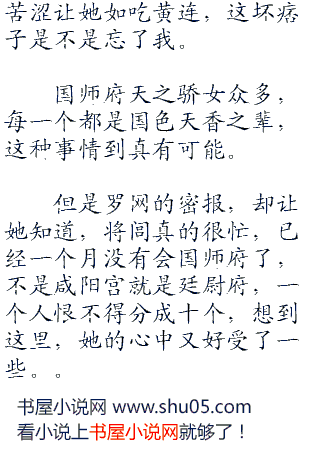 苦涩让她如吃黄连，这坏痞
子是不是忘了我。
国师府天之骄女众多，
每一个都是国色天香之辈，
这种事情到真有可能。
但是罗网的密报，却让
她知道，将闾真的很忙，已
经一个月没有会国师府了，
不是咸阳宫就是廷尉府，一
个人恨不得分成十个，想到
这里，她的心中又好受了一
些。。
书屋小说网 www.shu05.com
看小说上书屋小说网就够了！